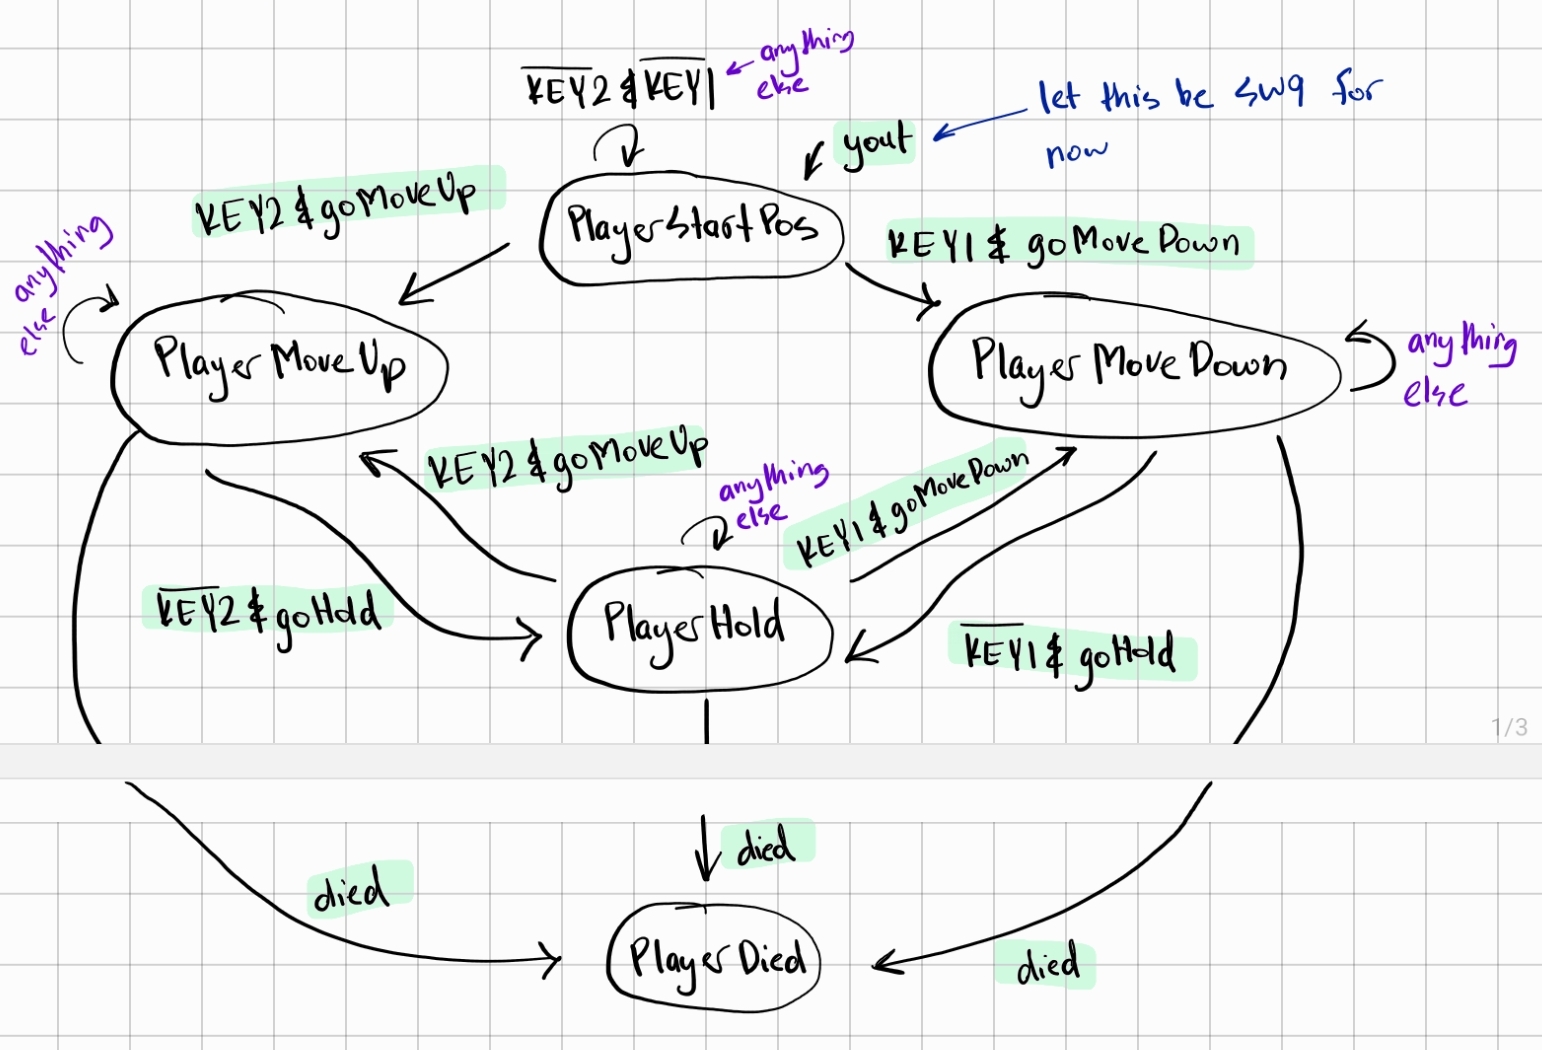 anything
else
K̅E̅Y̅2 & K̅E̅Y̅1
let this be SW9 for
now
yout
KEY2 & goMoveUp
PlayerStartPos
KEY1 & goMoveDown
anything
else
PlayerMoveUp
Player MoveDown
anything
else
KEY2 & goMoveUp
anything
else
KEY1 & goMoveDown
K̅E̅Y̅2 & goHold
PlayerHold
K̅E̅Y̅1 & goHold
1/3
died
died
PlayerDied
died